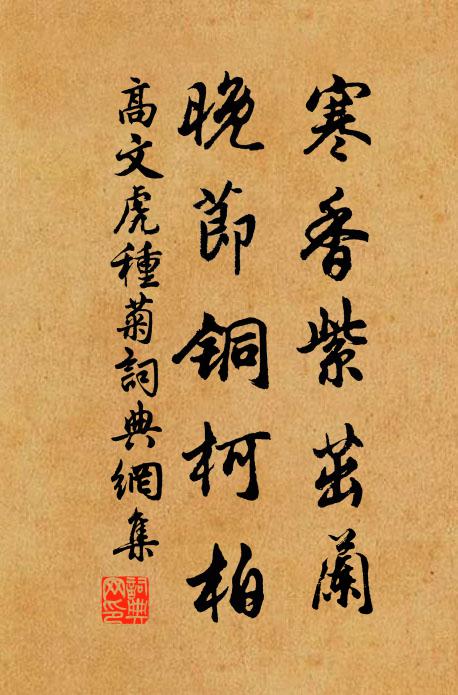 寒香紫茁蘭
晚節銅柯柏
高文虎種菊詞典網集
詞典网印